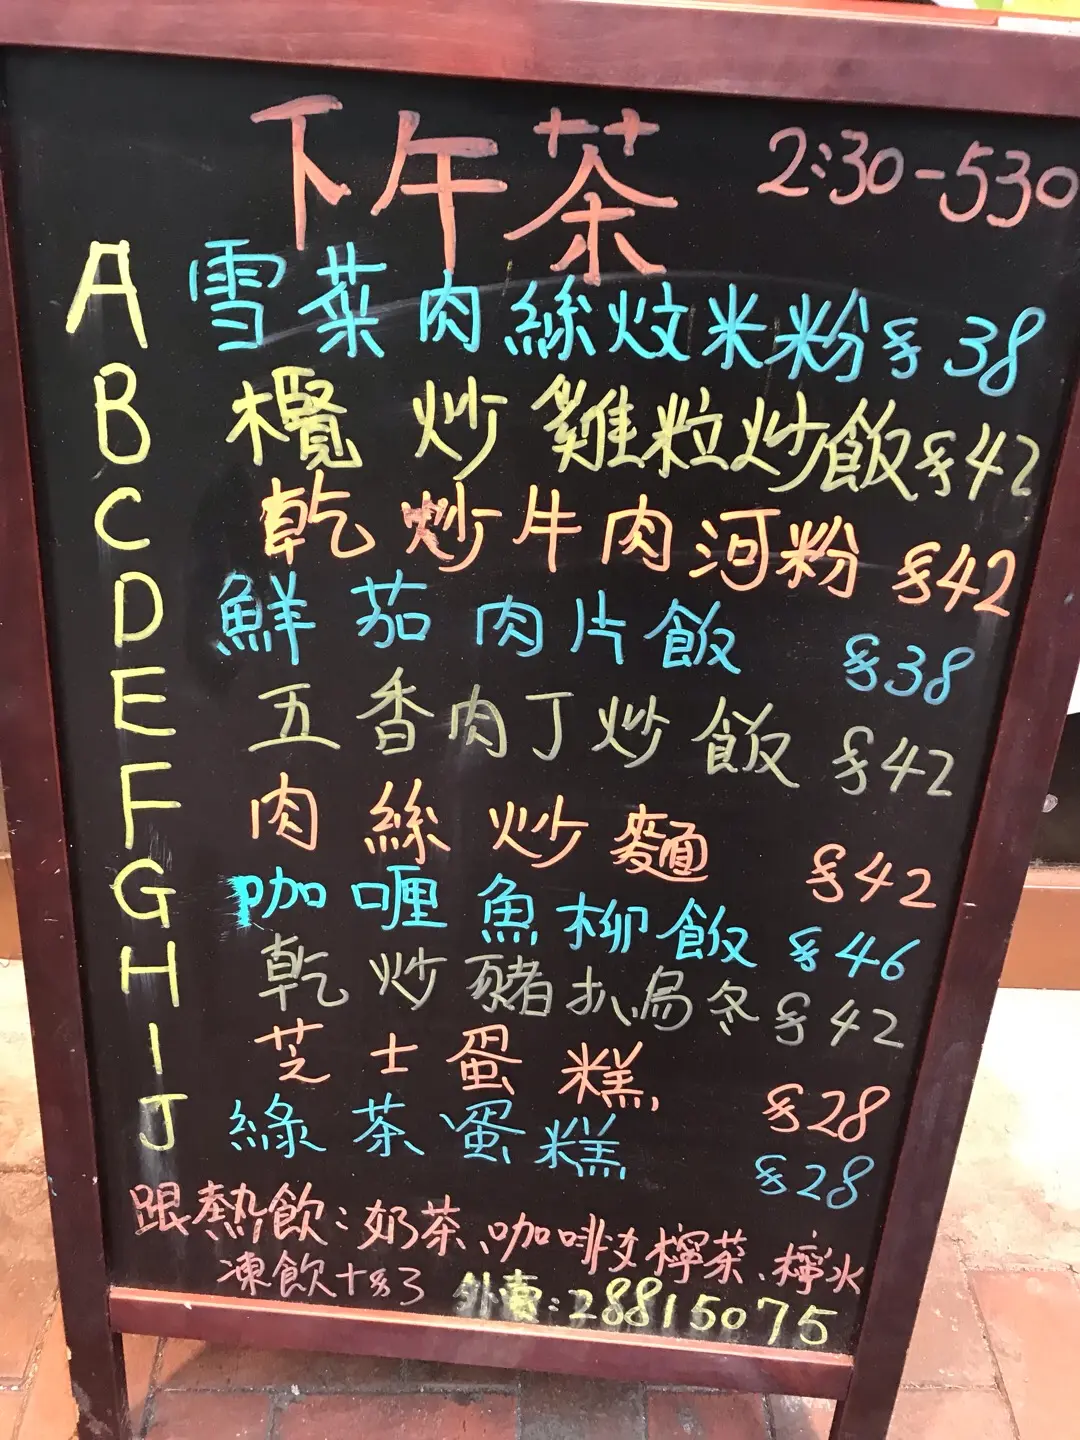 下午茶 2:30-530
A 雪菜肉絲炆米粉 $38
B 欖炒雞粒炒飯 $42
C 乾炒牛肉河粉 $42
D 鮮茄肉片飯 $38
E 五香肉丁炒飯 $42
F 肉絲炒麵 $42
G 咖喱魚柳飯 $46
H 乾炒豬扒烏冬 $42
I 芝士蛋糕 $28
J 綠茶蛋糕 $28
跟熱飲:奶茶、咖啡、檸茶、檸水
凍飲+$3 外賣:28815075